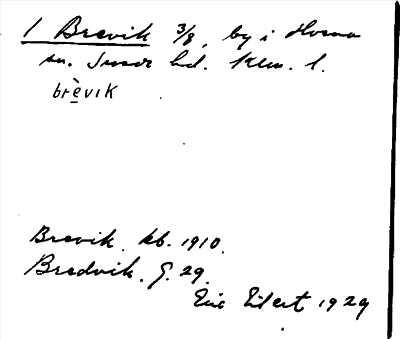 1 Brevik 3/8, by i Hosmo
sn. S. Möre hd. Klm. l.
brèvik
Brevik. kb. 1910.
Bredvik. G. 29.
Eric Eilert 1929